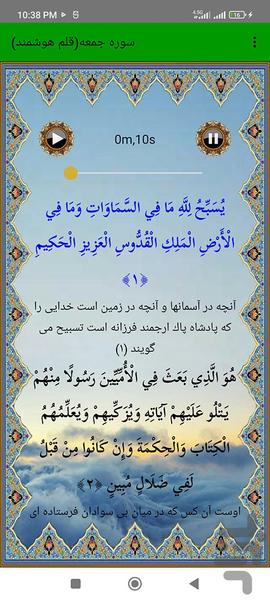 10:38 PM
4.5G
16
سوره جمعه(قلم هوشمند)
0m,10s
يُسَبِّحُ لِلَّهِ مَا فِي السَّمَاوَاتِ وَمَا فِي
الْأَرْضِ الْمَلِكِ الْقُدُّوسِ الْعَزِيزِ الْحَكِيمِ
﴿١﴾
آنچه در آسمانها و آنچه در زمین است خدایی را
که پادشاه پاک ارجمند فرزانه است تسبیح می
گویند (۱)
هُوَ الَّذِي بَعَثَ فِي الْأُمِّيِّينَ رَسُولًا مِنْهُمْ
يَتْلُو عَلَيْهِمْ آيَاتِهِ وَيُزَكِّيهِمْ وَيُعَلِّمُهُمُ
الْكِتَابَ وَالْحِكْمَةَ وَإِنْ كَانُوا مِنْ قَبْلُ
لَفِي ضَلَالٍ مُبِينٍ ﴿٢﴾
اوست آن کس که در میان بی سوادان فرستاده ای